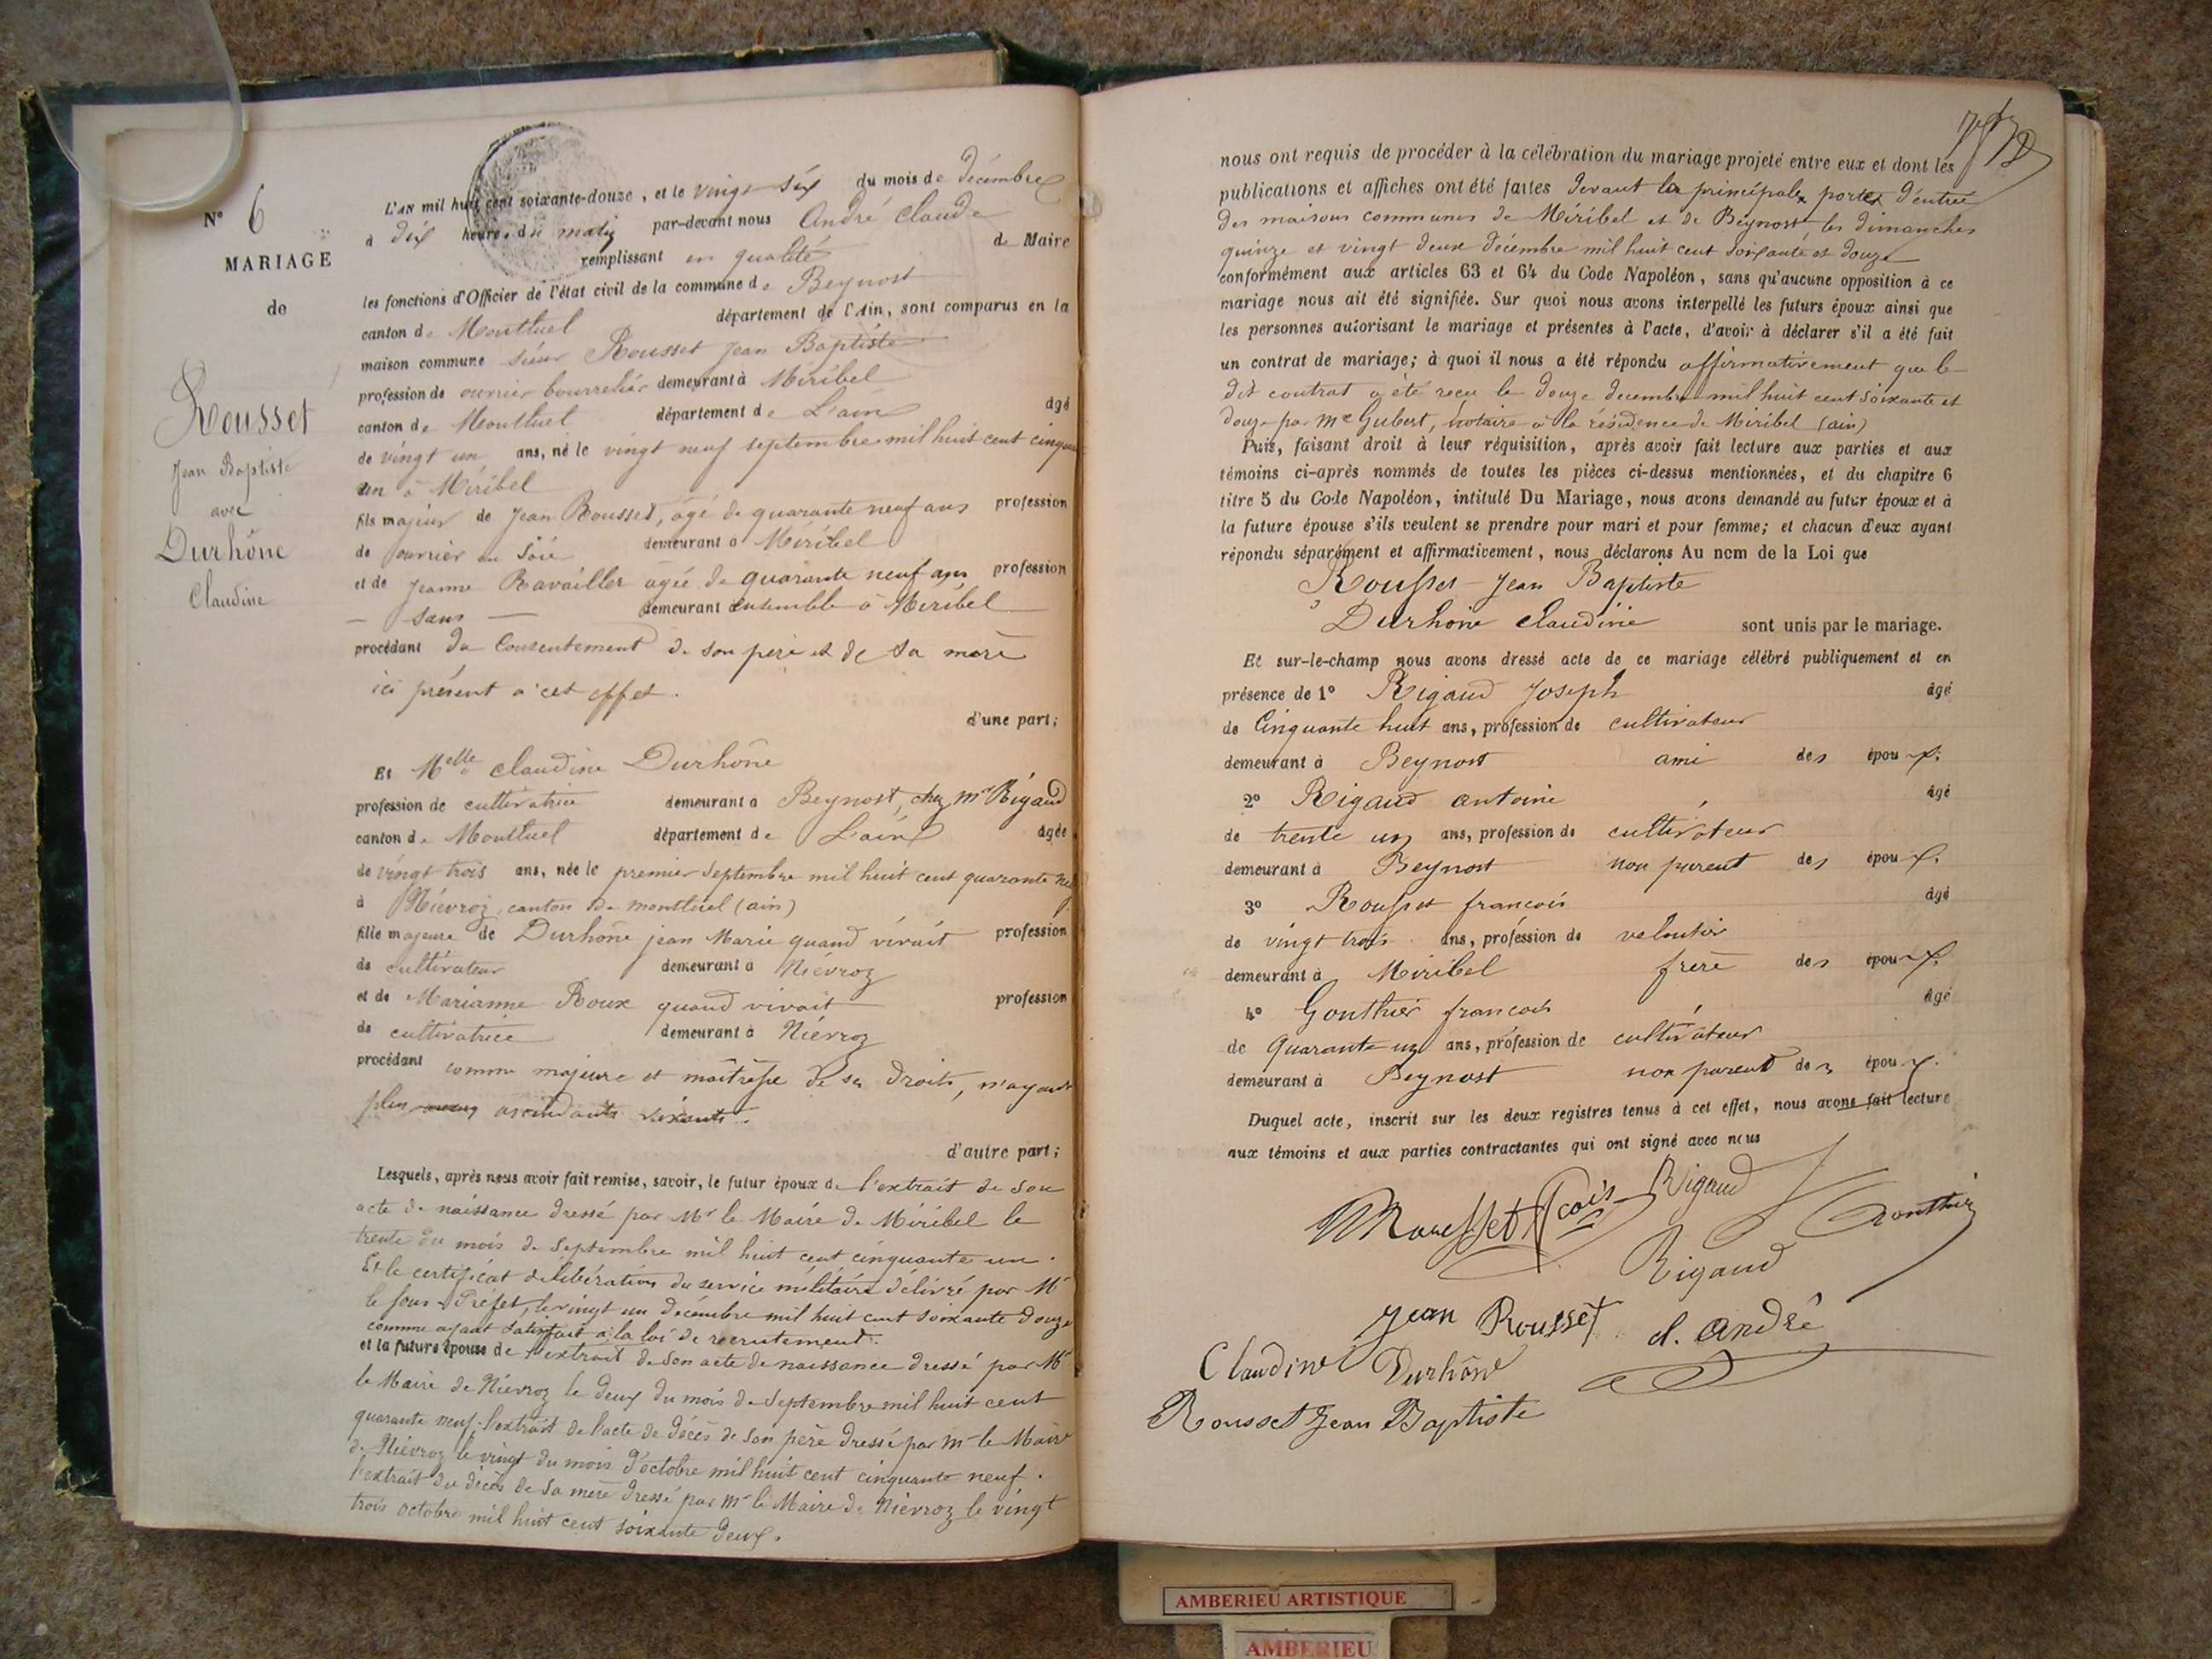 N° 6
MARIAGE
de
Rousset
Jean Baptiste
avec
Durhône
Claudine
L'AN mil huit cent soixante-douze, et le vingt six du mois de décembre
à dix heures du matin par-devant nous André Claude
remplissant en qualité de Maire
les fonctions d'Officier de l'état civil de la commune de Beynost
canton de Montluel département de l'Ain, sont comparus en la
maison commune sieur Rousset Jean Baptiste
profession de ouvrier bourrelier demeurant à Miribel
canton de Montluel département de L'ain âgé
de vingt un ans, né le vingt neuf septembre mil huit cent cinquante
un à Miribel
fils majeur de Jean Rousset, âgé de quarante neuf ans profession
de ouvrier en Soie demeurant à Miribel
et de Jeanne Ravailler agée de quarante neuf ans profession
— sans — demeurant ensemble à Miribel
procédant du Consentement de son père et de sa mère
ici présent à cet effet.
d'une part;
Et Melle Claudine Durhône
profession de cultivatrice demeurant à Beynost, chez Mr Rigaud
canton de Montluel département de L'ain âgée
de vingt trois ans, née le premier Septembre mil huit cent quarante neuf
à Niévroz, canton de Montluel (ain)
fille majeure de Durhône jean Marie quand vivait profession
de cultivateur demeurant à Niévroz
et de Marianne Roux quand vivait profession
de cultivatrice demeurant à Niévroz
procédant comme majeure et maîtresse de ses droits, n'ayant
plus ascendants vivants.
d'autre part;
Lesquels, après nous avoir fait remise, savoir, le futur époux de l'extrait de son
acte de naissance dressé par Mr le Maire de Miribel le
trente du mois de Septembre mil huit cent cinquante un.
Et le certificat de libération du service militaire délivré par Mr
le sous-Préfet, le vingt un décembre mil huit cent soixante douze
comme ayant satisfait à la loi de recrutement.
et la future épouse de l'extrait de son acte de naissance dressé par Mr
le Maire de Niévroz le deux du mois de Septembre mil huit cent
quarante neuf; l'extrait de l'acte de décès de son père dressé par Mr le Maire
de Niévroz le vingt du mois d'octobre mil huit cent cinquante neuf.
l'extrait du décès de sa mère dressé par Mr le Maire de Niévroz le vingt
trois octobre mil huit cent soixante deux.
nous ont requis de procéder à la célébration du mariage projeté entre eux et dont les
publications et affiches ont été faites devant la principale porte d'entrée
des maisons communes de Miribel et de Beynost, les dimanches
quinze et vingt deux décembre mil huit cent soixante et douze
conformément aux articles 63 et 64 du Code Napoléon, sans qu'aucune opposition à ce
mariage nous ait été signifiée. Sur quoi nous avons interpellé les futurs époux ainsi que
les personnes autorisant le mariage et présentes à l'acte, d'avoir à déclarer s'il a été fait
un contrat de mariage; à quoi il nous a été répondu affirmativement que le
dit contrat a été reçu le douze décembre mil huit cent soixante et
douze par Me Gubert, notaire à la résidence de Miribel (ain)
Puis, faisant droit à leur réquisition, après avoir fait lecture aux parties et aux
témoins ci-après nommés de toutes les pièces ci-dessus mentionnées, et du chapitre 6
titre 5 du Code Napoléon, intitulé Du Mariage, nous avons demandé au futur époux et à
la future épouse s'ils veulent se prendre pour mari et pour femme; et chacun d'eux ayant
répondu séparément et affirmativement, nous déclarons Au nom de la Loi que
Rousset Jean Baptiste
Durhône Claudine sont unis par le mariage.
Et sur-le-champ nous avons dressé acte de ce mariage célébré publiquement et en
présence de 1° Rigaud Joseph âgé
de Cinquante huit ans, profession de cultivateur
demeurant à Beynost ami des époux.
2° Rigaud antoine âgé
de trente un ans, profession de cultivateur
demeurant à Beynost non parent des époux.
3° Rousset francois âgé
de vingt trois ans, profession de veloutier
demeurant à Miribel frère des époux.
4° Gonthier francois âgé
de Quarante un ans, profession de cultivateur
demeurant à Beynost non parent des époux.
Duquel acte, inscrit sur les deux registres tenus à cet effet, nous avons fait lecture
aux témoins et aux parties contractantes qui ont signé avec nous
Rousset fcois Rigaud
Gonthier
Rigaud
Jean Rousset
cl. André
Claudine Durhône
Rousset Jean Baptiste
AMBERIEU ARTISTIQUE
AMBERIEU